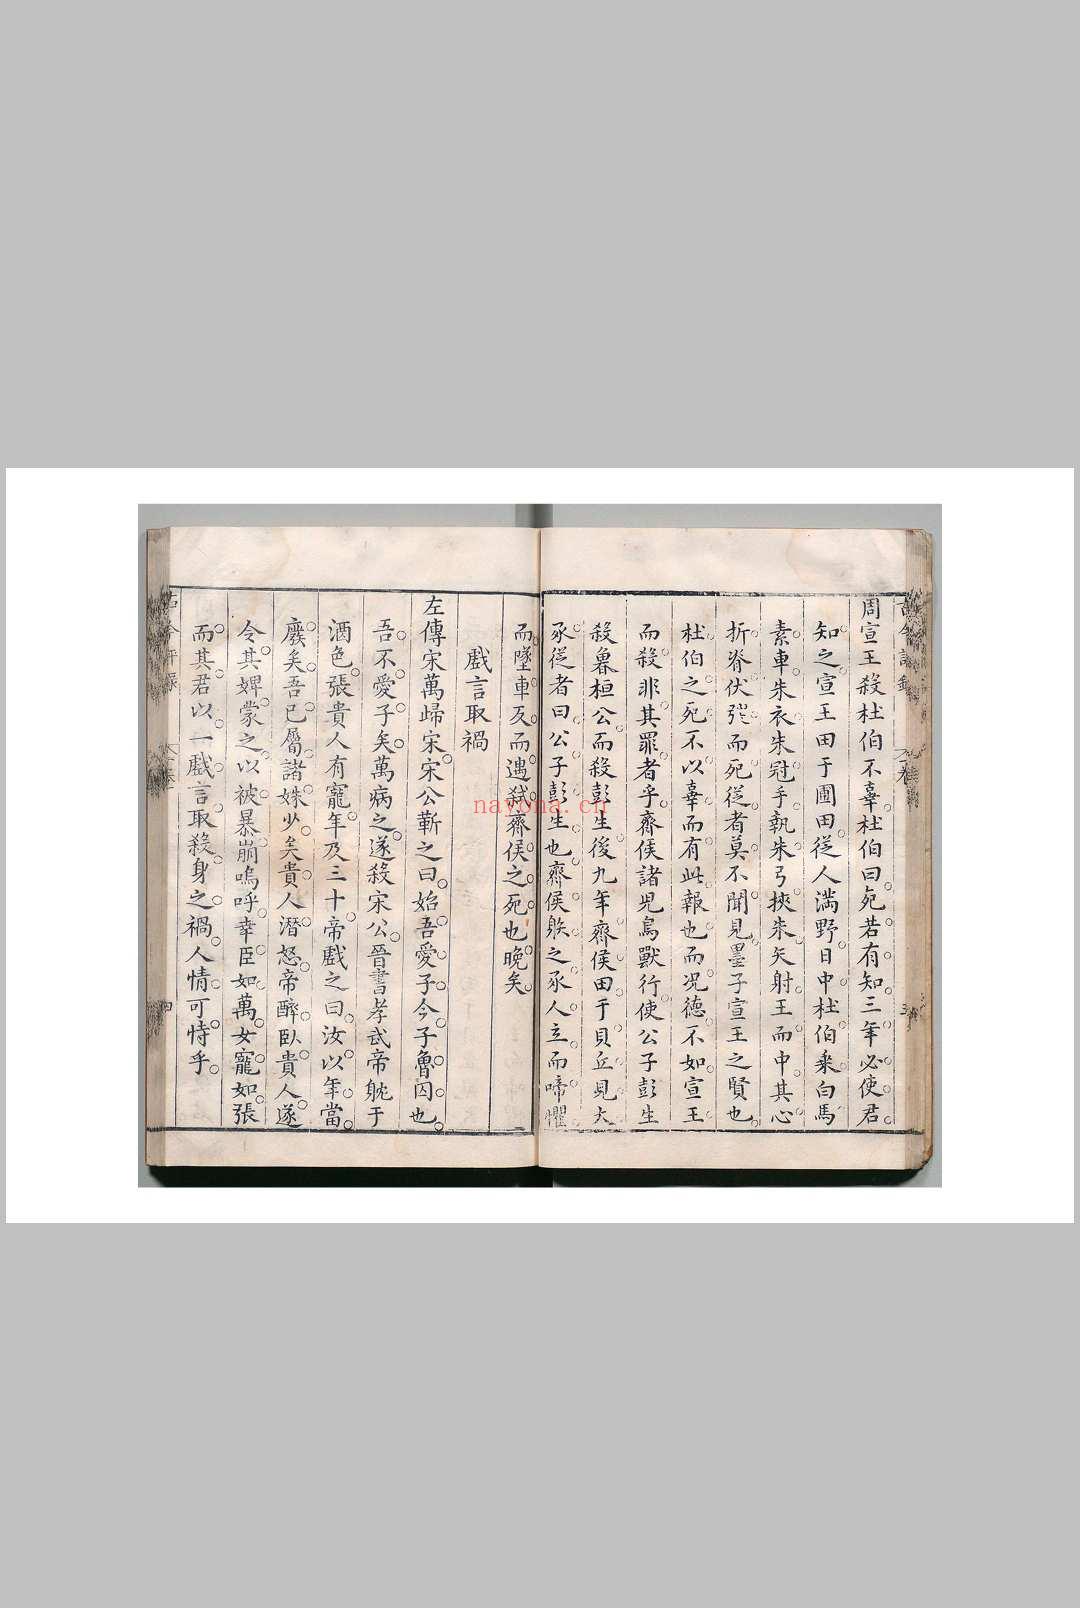 周宣王殺杜伯不辜杜伯曰死若有知三年必使君
知之宣王田于圃田從人滿野日中杜伯乘白馬
素車朱衣朱冠手執朱弓挾朱矢射王而中其心
折脊伏弢而死從者莫不聞見墨子宣王之賢也
杜伯之死不以辜而有此報也而况德不如宣王
而殺非其罪者乎齊侯諸兒鳥獸行使公子彭生
殺魯桓公而殺彭生後九年齊侯田于貝丘見大
豕從者曰公子彭生也齊侯射之豕人立而啼懼
而墜車反而遇弑齊侯之死也晚矣
戲言取禍
左傳宋萬歸宋宋公靳之曰始吾愛子今子魯囚也
吾不愛子矣萬病之遂殺宋公晉書孝武帝躭于
酒色張貴人有寵年及三十帝戲之曰汝以年當
廢矣吾已屬諸姝少矣貴人潛怒帝醉臥貴人遂
令其婢蒙之以被暴崩嗚呼幸臣如萬女寵如張
而其君以一戲言取殺身之禍人情可恃乎
古今評錄
卷
四
nayona.cn